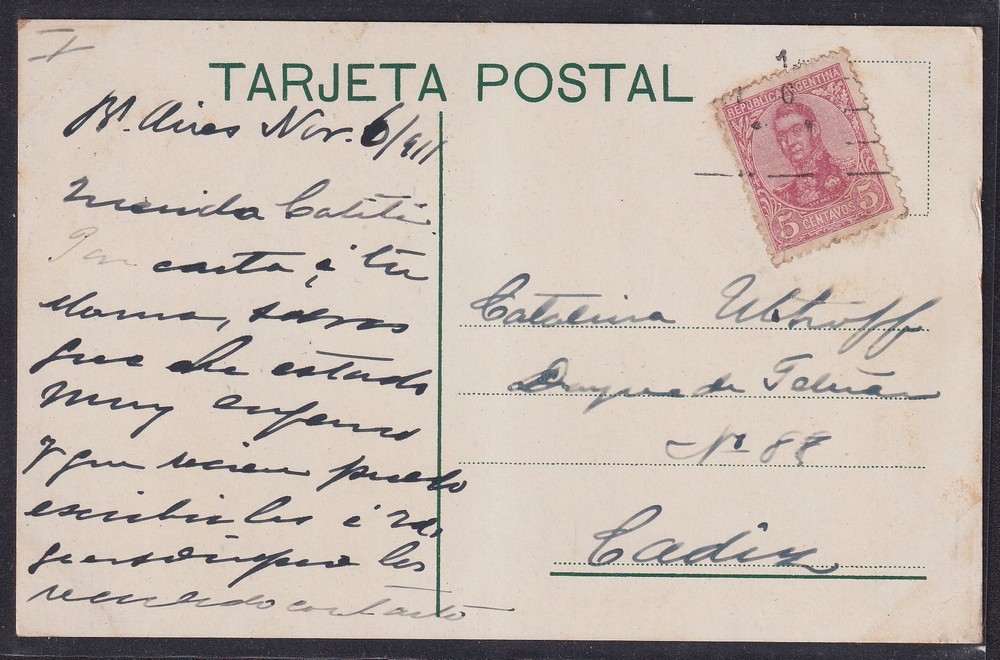 TARJETA POSTAL
Bs Aires Nov. 6/911
Querida Catiti
Por carta á tu
Mama, sabras
que he estado
muy enfermo
y que recien puedo
escribirles á Vds.
quersiempre les
recuerdo con
REPUBLICA ARGENTINA
5 CENTAVOS 5
Catalina Uhthoff
Duque de Tetuan
No 88
Cadiz